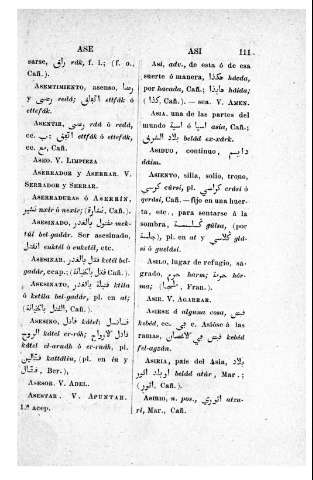 ASE
ASI
111
sarse, راق rák, f. i.; (f. o.,
Cañ.).
ASENTIMIENTO, asenso, رضا
رضى y redá; اتّفاق ettfák ó
ettefák.
ASENTIR, رضى rdá ó redá,
cc. ب; اتّفق ettfák ó ettefák,
cc. مع, Cañ.
ASEO. V. LIMPIEZA
ASERRADOR y ASERRAR. V.
SERRADOR y SERRAR.
ASERRADURAS ó ASERRÍN,
نشير nxir ó nexir; (نشارة, Cañ.).
ASESINADO, مقتول بالغدر mek-
túl bel-gadár. Ser asesinado,
انقتل enktél ó enketél, etc.
ASESINAR, قتل بالغدر ketél bel-
gadár, ccap.; (قتل بالخيانة, Cañ.).
ASESINATO, قتلة بالغدر ktila
ó ketila bel-gadár, pl. en at;
(القتل بالخيانة, Cañ.).
ASESINO, قاتل kátel; قاتل الروح
kátel er-róh; قاتل الارواح
kátel el-aruáh ó er-ruáh, pl.
قتّالين kattálin, (pl. en in y
قتّال, Ber.),
ASESOR. V. ADEL.
ASESTAR. V. APUNTAR.
1.ª acep.
ASÍ, adv., de esta ó de esa
suerte ó manera, هكذا háeda,
por hacada, Cañ.; هايدا háida;
(كذا, Cañ.). — sea. V. AMEN.
ASIA, una de las partes del
mundo اسية ó اسيا asia, Cañ.;
بلاد الشرق beléd ex-xárk.
ASIDUO, continuo, دايم
dáim.
ASIENTO, silla, solio, trono,
كرسي cúrsi, pl. كراسي crási ó
gerási, Cañ. — fijo en una huer-
ta, etc., para sentarse á la
sombra, گلسة gúlsa, (por
جلسة), pl. en at y گلاسي glá-
si ó guelási.
ASILO, lugar de refugio, sa-
grado, حرم harm; حرمة hór-
ma; (ملجا, Fran.).
ASIR. V. AGARRAR.
ASIRSE á alguna cosa, قبض
kebéd, cc. في e. Asióse á las
ramas, قبض في الاغصان kebéd
fel-agzán.
ASIRIA, país del Asia, بلاد
اثور beléd atúr, Mar.;
(اثور, Cañ.).
ASIRIO, n. pos., اثوري atu-
ri, Mar., Cañ.